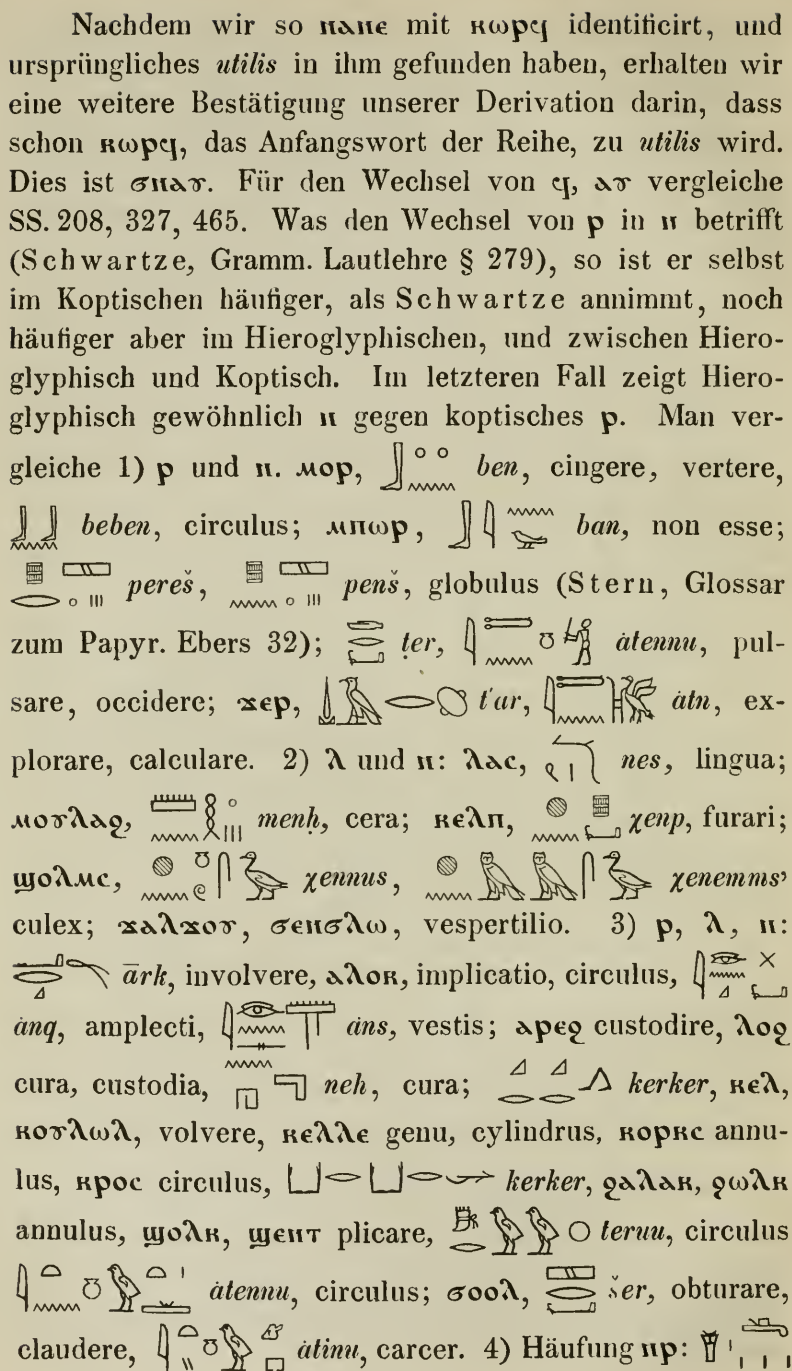 Nachdem wir so ⲛⲁⲛⲉ mit ⲕⲱⲣϥ identificirt, und
ursprüngliches utilis in ihm gefunden haben, erhalten wir
eine weitere Bestätigung unserer Derivation darin, dass
schon ⲕⲱⲣϥ, das Anfangswort der Reihe, zu utilis wird.
Dies ist ϭⲛⲁⲩ. Für den Wechsel von ϥ, ⲁⲩ vergleiche
SS. 208, 327, 465. Was den Wechsel von ⲣ in ⲛ betrifft
(Schwartze, Gramm. Lautlehre § 279), so ist er selbst
im Koptischen häufiger, als Schwartze annimmt, noch
häufiger aber im Hieroglyphischen, und zwischen Hiero-
glyphisch und Koptisch. Im letzteren Fall zeigt Hiero-
glyphisch gewöhnlich ⲛ gegen koptisches ⲣ. Man ver-
gleiche 1) ⲣ und ⲛ. ⲙⲟⲣ, ben, cingere, vertere,
beben, circulus; ⲙⲡⲱⲣ, ban, non esse;
pereš, penš, globulus (Stern, Glossar
zum Papyr. Ebers 32); ṭer, ȧtennu, pul-
sare, occidere; ϫⲉⲣ, t'ar, ȧtn, ex-
plorare, calculare. 2) ⲗ und ⲛ: ⲗⲁⲥ, nes, lingua;
ⲙⲟⲩⲗⲁϩ, menḥ, cera; ⲕⲉⲗⲡ, χenp, furari;
ϣⲟⲗⲙⲥ, χennus, χenemms,
culex; ϫⲁⲗϫⲟⲩ, ϭⲉⲛϭⲗⲱ, vespertilio. 3) ⲣ, ⲗ, ⲛ:
ārk, involvere, ⲁⲗⲟⲕ, implicatio, circulus,
ȧnq, amplecti, ȧns, vestis; ⲁⲣⲉϩ custodire, ⲗⲟϩ
cura, custodia, neh, cura; kerker, ⲕⲉⲗ,
ⲕⲟⲩⲗⲱⲗ, volvere, ⲕⲉⲗⲗⲉ genu, cylindrus, ⲕⲟⲣⲕⲥ annu-
lus, ⲕⲣⲟⲥ circulus, kerker, ϩⲁⲗⲁⲕ, ϩⲱⲗⲕ
annulus, ϣⲟⲗⲕ, ϣⲉⲛⲧ plicare, teruu, circulus
ȧtennu, circulus; ϭⲟⲟⲗ, šer, obturare,
claudere, ȧtinu, carcer. 4) Häufung ⲛⲣ: